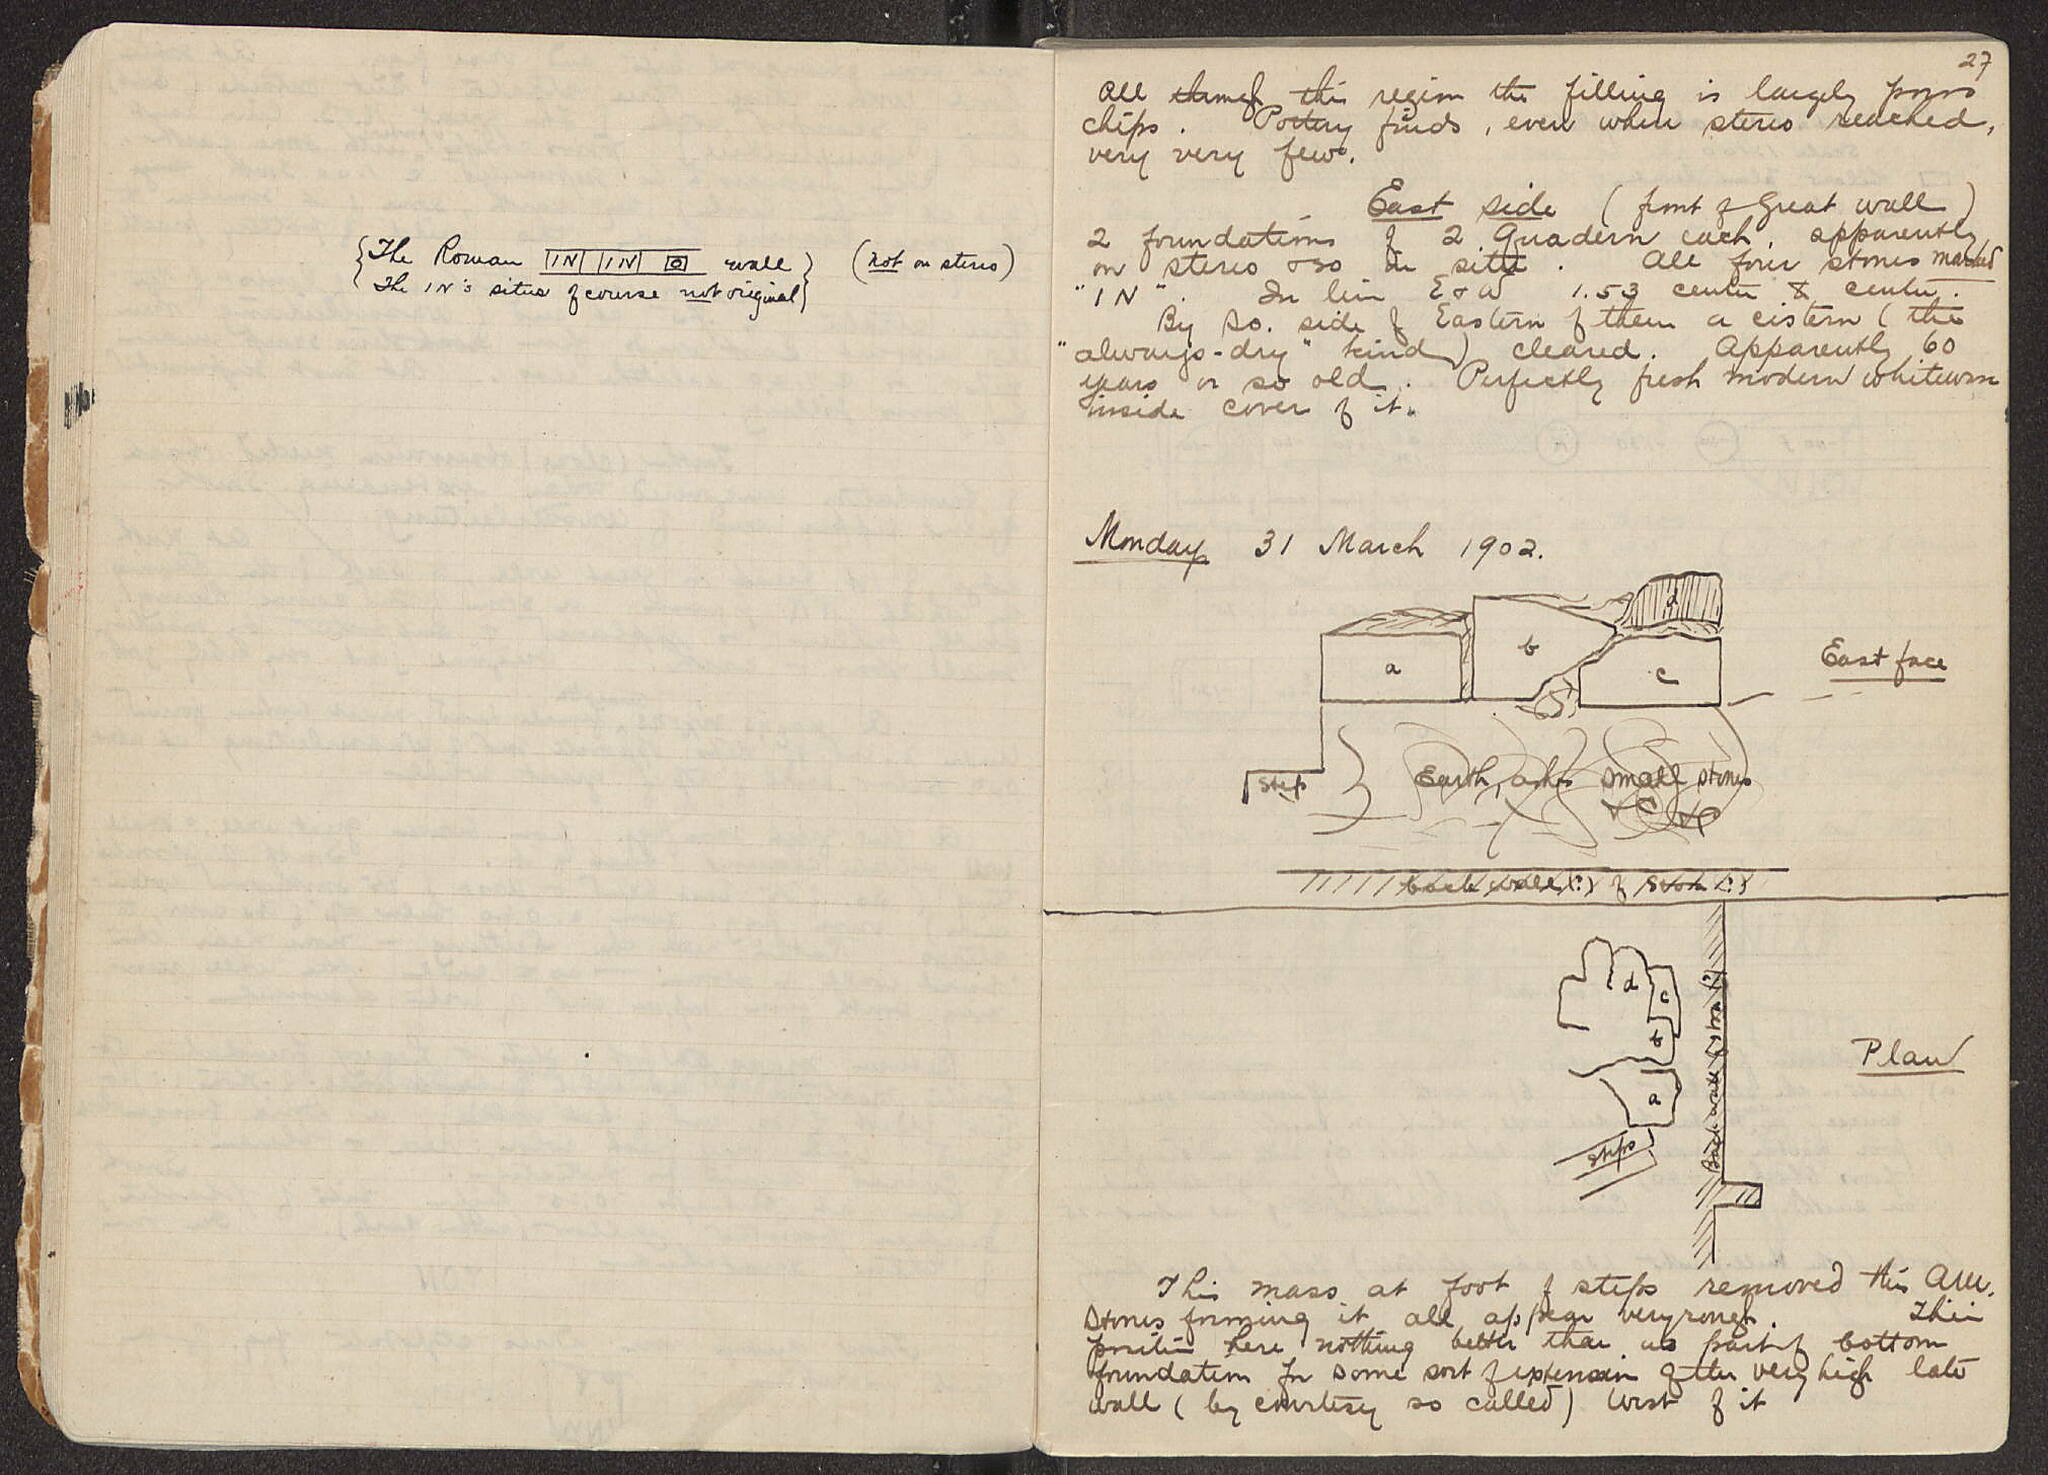 {The Roman IN IN wall} (not on stereo)
{The IN's situs of course not original}
27
All through this region the filling is largely poros
chips. Pottery finds, even when stereo reached,
very very few.
East side (front of Great wall)
2 foundations of 2 Quadern each, apparently
on stereo & so in situ. All four stones marked
"IN". In line E & W 1.53 center to center.
By So. side of Eastern of them a cistern (the
"always-dry" kind) cleared. Apparently 60
years or so old. Perfectly fresh modern
inside cover of it.
Monday 31 March 1902.
d
b
a
c
East face
Step
Earth, ashes small stones
back wall (?) of Stoa (?)
d
c
b
a
steps
Back wall (?) of Stoa (?)
Plan
This mass at foot of steps removed this A.M.
Stones forming it all appear very rough. Their
position here nothing better than as part of bottom
foundation for some sort of extension of the very high late
wall (by courtesy so called) West of it